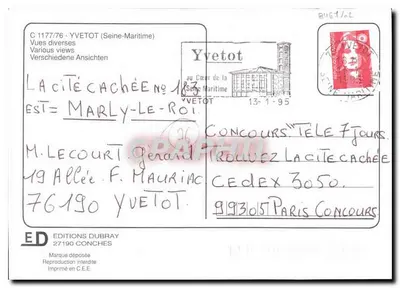 C 1177/76 - YVETOT (Seine-Maritime)
Vues diverses
Various views
Verschiedene Ansichten
Yvetot
au Cœur de la
Maritime
YVETOT
13-1-95
LA CITÉ CACHÉE No 183
EST = MARLY-LE-ROI
M. LECOURT Gérard
19 Allée. F. MAURIAC
76190 YVETOT
26
CONCOURS "TÉLÉ 7 JOURS
TROUVEZ LA CITÉ CACHÉE
CEDEX 3050.
99305 PARIS CONCOURS
ED EDITIONS DUBRAY
27190 CONCHES
Marque déposée
Reproduction interdite
Imprimé en C.E.E.